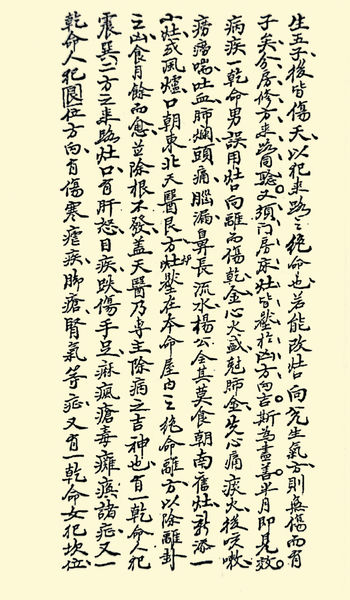 生五子後皆傷夭以犯来路之绝命也若能改灶口向先生氣方則無傷而有
子矣合房修方来路同驗又須门房床灶皆壓於凶方向吉斯為盡善半月即見效
病疾一乾命男誤用灶口向離而傷乾金心火盛尅肺金先心痛痰火後咳嗽
癆瘵喘吐血肺爛頭痛腦漏鼻長流水楊公令其莫食朝南舊灶新添一
小灶或風爐口朝東北天醫艮方灶壓在本命屋内之绝命離方以除離卦
之凶食月餘而愈並除根不發蓋天醫乃專主除病之吉神也有一乾命人犯
震巽二方之来路灶口有肝怒目疾跌傷手足麻瘋瘡毒癱瘓諸症又一
乾命人犯位方向有傷寒瘧疾脚瘡腎氣等症又有一乾命女犯坎位